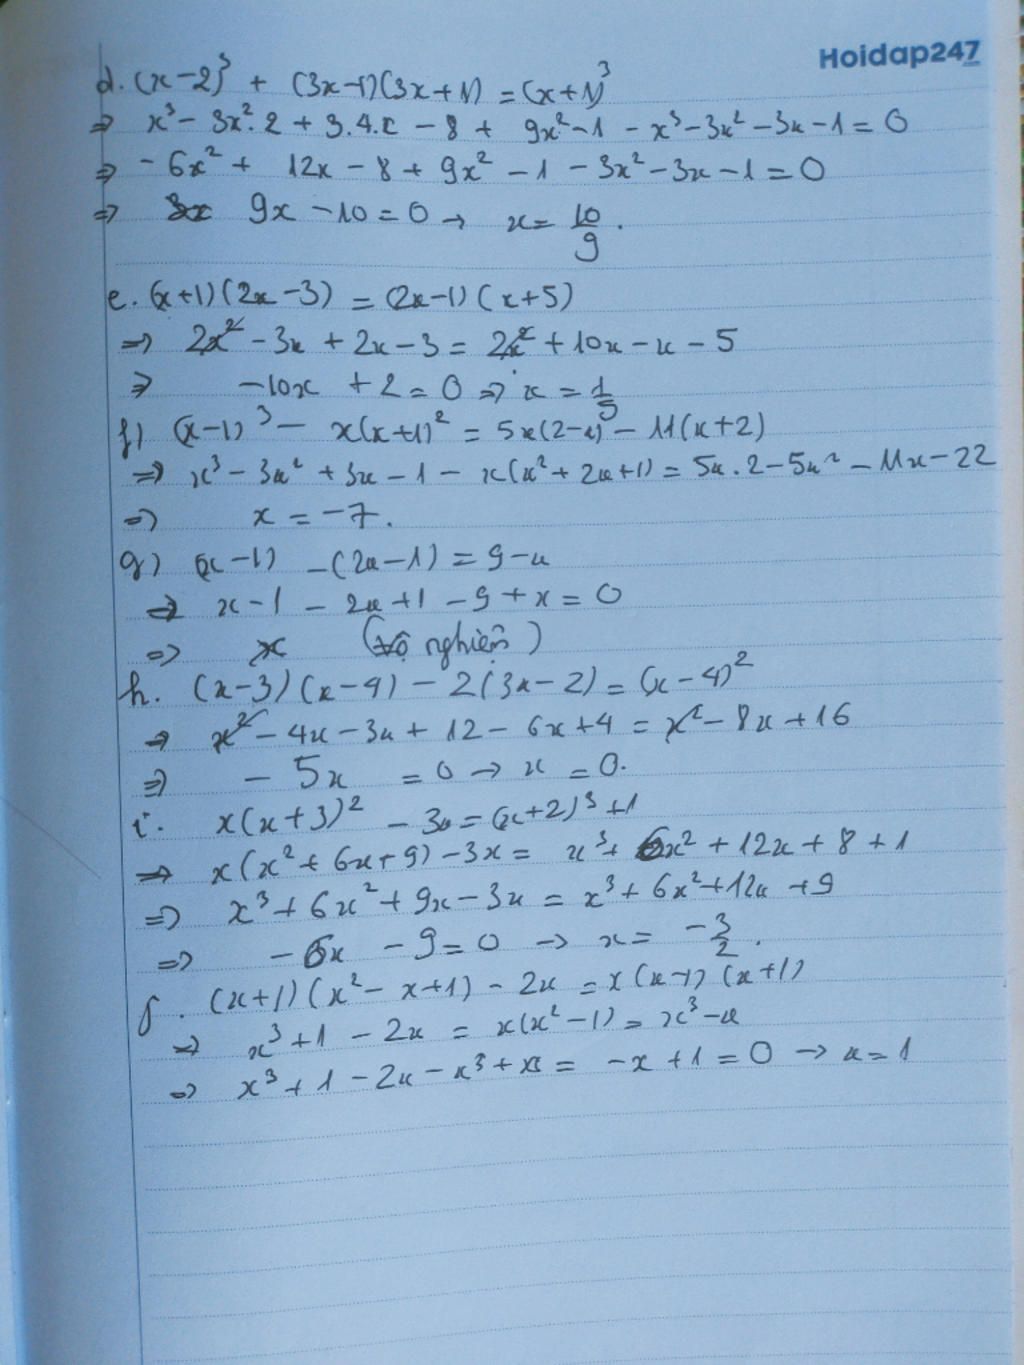 Hoidap247
d. (x-2)³ + (3x-1)(3x+1) = (x+1)³
=> x³ - 3x².2 + 3.4.x - 8 + 9x² - 1 - x³ - 3x² - 3x - 1 = 0
=> - 6x² + 12x - 8 + 9x² - 1 - 3x² - 3x - 1 = 0
=> 9x - 10 = 0 → x = 10/9.
e. (x+1)(2x-3) = (2x-1)(x+5)
=> 2x² - 3x + 2x - 3 = 2x² + 10x - x - 5
=> -10x + 2 = 0 => x = 1/5
f) (x-1)³ - x(x+1)² = 5x(2-x) - 11(x+2)
=> x³ - 3x² + 3x - 1 - x(x² + 2x + 1) = 5x.2 - 5x² - 11x - 22
=> x = -7.
g) (x-1) - (2x-1) = 9-x
=> x - 1 - 2x + 1 - 9 + x = 0
=> (vô nghiệm)
h. (x-3)(x-4) - 2(3x-2) = (x-4)²
=> x² - 4x - 3x + 12 - 6x + 4 = x² - 8x + 16
=> - 5x = 0 → x = 0.
i. x(x+3)² - 3x = (x+2)³ + 1
=> x(x² + 6x + 9) - 3x = x³ + 6x² + 12x + 8 + 1
=> x³ + 6x² + 9x - 3x = x³ + 6x² + 12x + 9
=> - 6x - 9 = 0 → x = -3/2.
j. (x+1)(x² - x + 1) - 2x = x(x-1)(x+1)
=> x³ + 1 - 2x = x(x² - 1) = x³ - x
=> x³ + 1 - 2x - x³ + x = -x + 1 = 0 → x = 1